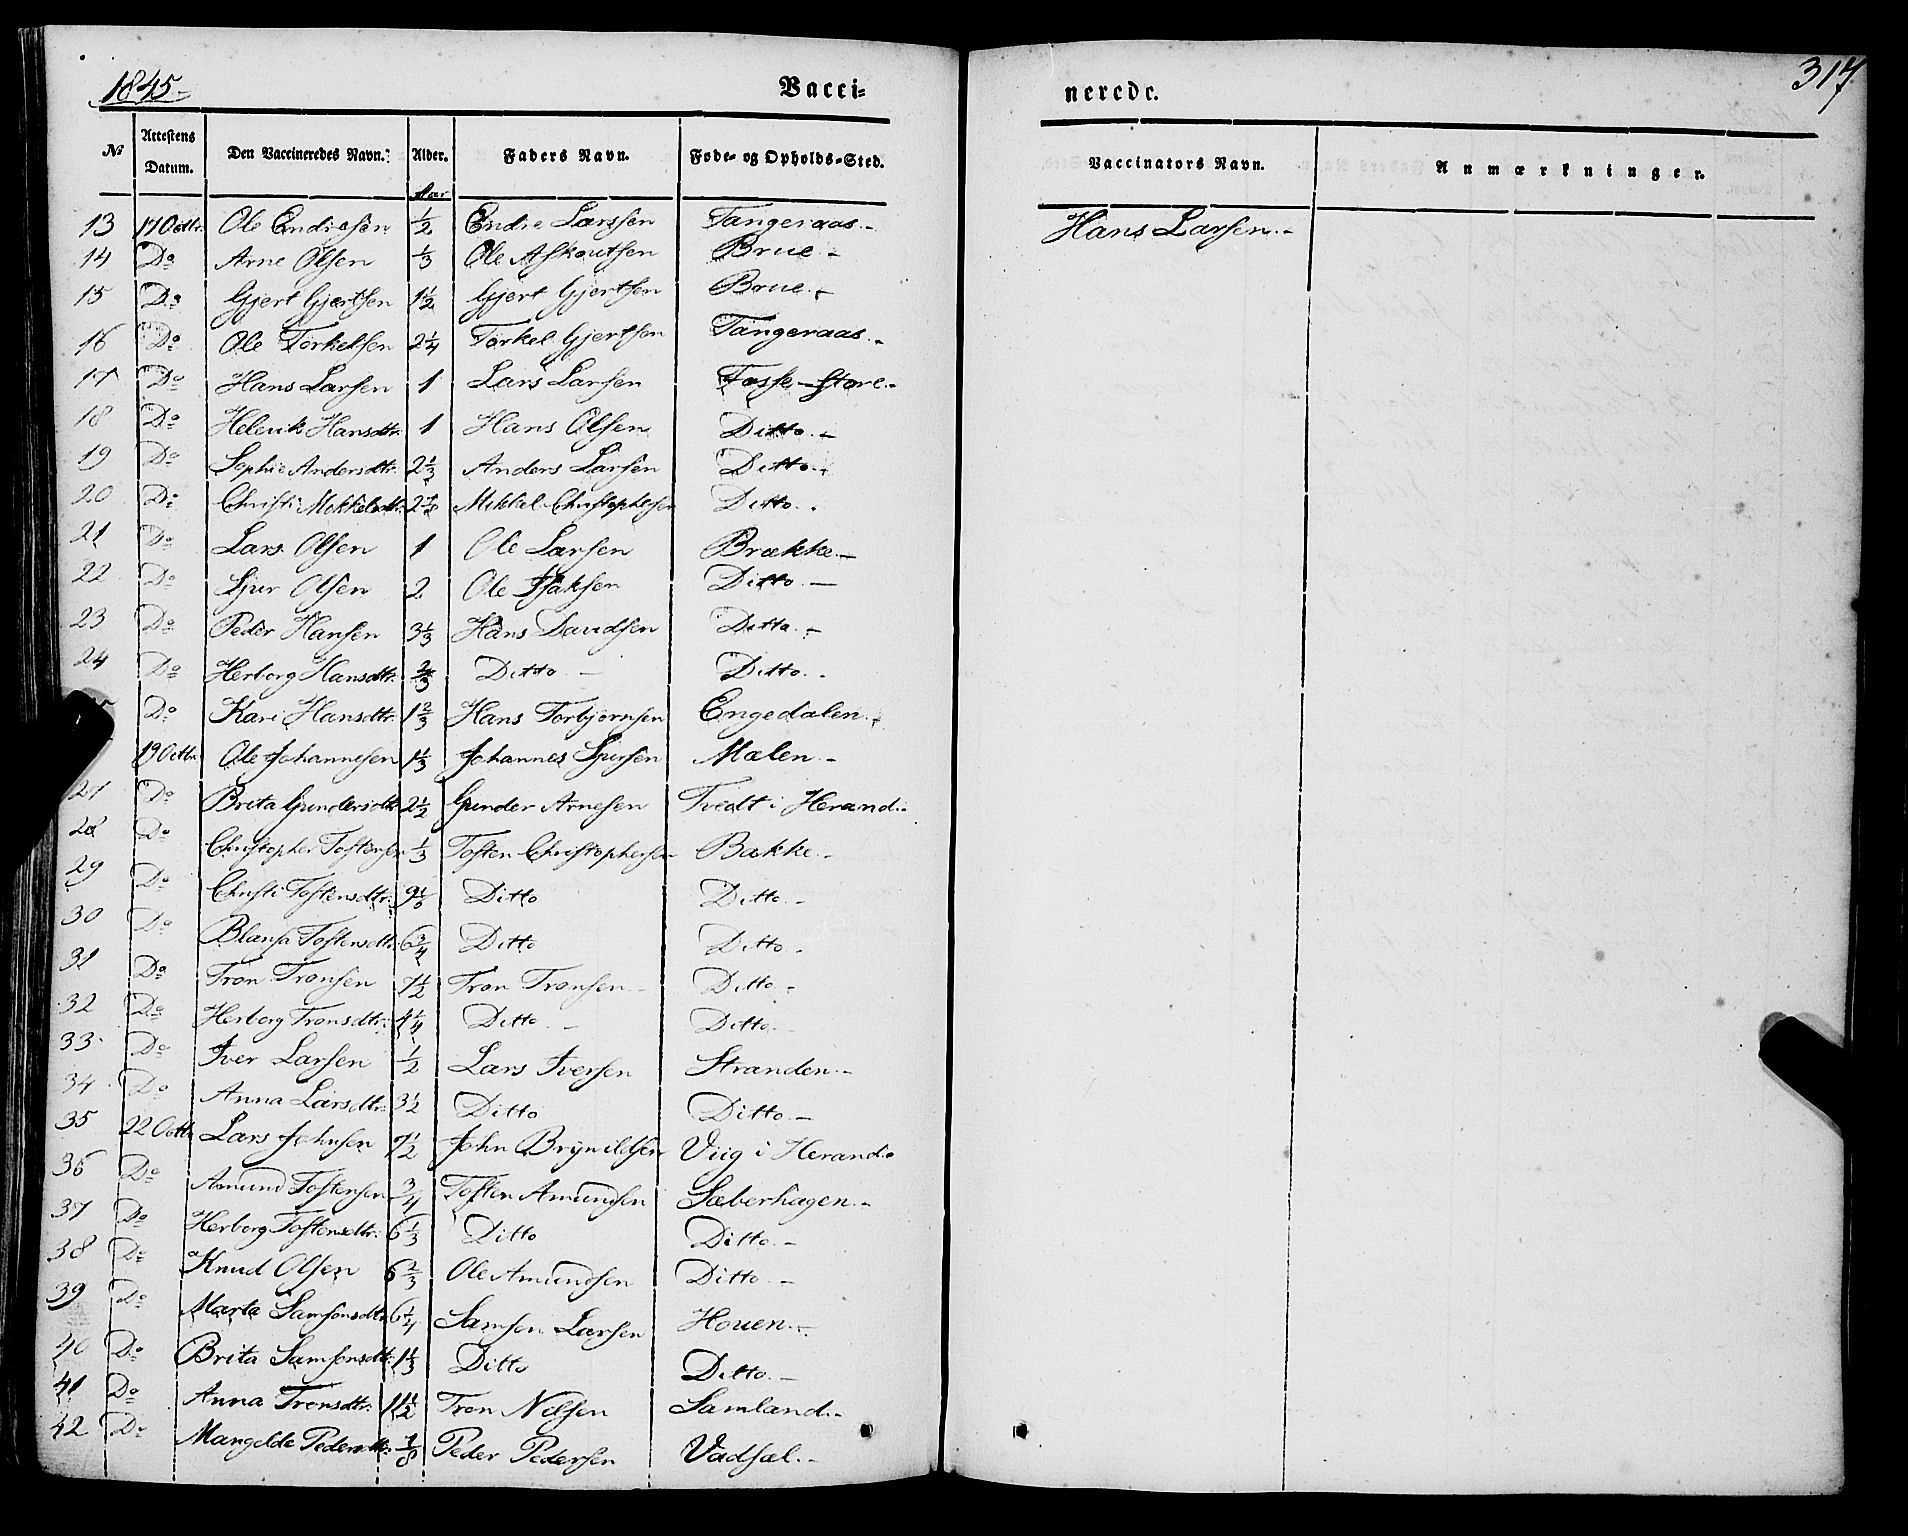 1845.-
Vacci=
nerede.
317
No Attestens Datum. Den Vaccineredes Navn. Alder. Faders Navn. Føde- og Opholds-Sted. Vaccinators Navn. Anmærkninger.
Aar
13 17 Octbr. Ole Endresen 1/2 Endre Larssen Tangeraas.- Hans Larsen.-
14 Do Arne Olsen 1/3 Ole Askoutsen Brue.-
15 Do Gjert Gjertsen 1 1/2 Gjert Gjertsen Brue.-
16 Do Ole Torkelsen 2 1/4 Torkel Gjertsen Tangeraas.-
17 Do Hans Larsen 1 Lars Larsen Fosse-Store.-
18 Do Helerik Hansdtr. 1 Hans Olsen Ditto.-
19 Do Sophie Andersdtr. 2 1/3 Anders Larsen Ditto.-
20 Do Christi Mikkelsdtr. Mikkel Christophersen Ditto.-
21 Do Lars Olsen 1 Ole Larsen Brække.-
22 Do Sjur Olsen 2 Ole Isaksen Ditto.-
23 Do Peder Hansen 3 1/3 Hans Davidsen Ditto.-
24 Do Herborg Hansdtr. 2/3 Ditto.- Ditto.-
Do Kari Hansdtr. 1 2/3 Hans Torbjørnsen Engedalen.-
19 Octbr. Ole Johannesen 1 1/3 Johannes Sjursen Malen.-
27 Do Brita Gundersdtr. 2 1/2 Gunder Arnesen Tvedt i Herand.-
28 Do Christopher Tostensen 1/3 Tosten Christophersen Bakke.-
29 Do Christi Tostensdtr. Ditto Ditto.-
30 Do Tostensdtr. 6 3/4 Ditto Ditto.-
31 Do Tron Tronsen 7 1/2 Tron Tronsen Ditto.-
32 Do Herborg Tronsdtr. 4 1/4 Ditto.- Ditto.-
33 Do Iver Larsen 1/2 Lars Iversen Stranden.-
34 Do Anna Larsdtr. 3 1/2 Ditto Ditto.-
35 22 Octbr. Lars Johnsen 7 1/2 John Brynildsen Viig i Herand.-
36 Do Amund Tostensen 3/4 Tosten Amundsen Sæberhagen.-
37 Do Herborg Tostensdtr. 6 1/3 Ditto Ditto.-
38 Do Knud Olsen 6 2/3 Ole Amundsen Ditto.-
39 Do Marta Samsonsdtr. 6 1/4 Samson Larsen Houen.-
40 Do Brita Samsonsdtr. 1 1/3 Ditto Ditto.-
41 Do Anna Tronsdtr. 11 1/2 Tron Nilsen Samland.-
42 Do Mangelde Pedersdtr. 7/8 Peder Pedersen Vadsal.-